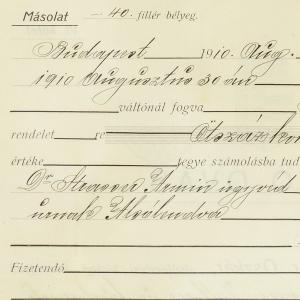 Másolat - 40. fillér bélyeg.
Budapest 1910. Aug.
1910 Augusztus 30 án
váltónál fogva
rendelet re Ötszáz kor
értéke tegye számolásba tud
Dr Strasser Ármin ügyvéd
urnak Alsólendva
Fizetendő